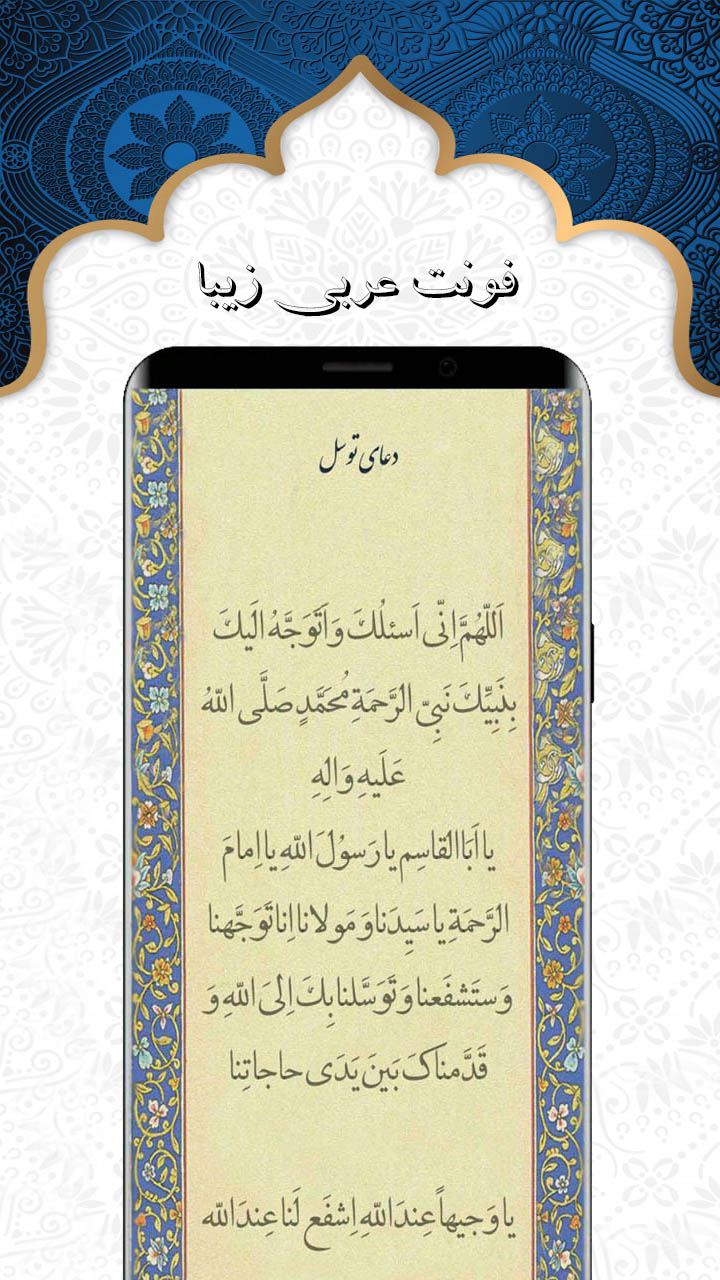 فونت عربی زیبا
دعای توسل
اَللّهُمَّ اِنّی اَسئلُکَ وَ اَتَوَجَّهُ الَیکَ
بِنَبِیِّکَ نَبِیِّ الرَّحمَةِ مُحَمَّدٍ صَلَّی اللهُ
عَلَیهِ وَ الِهِ
یا اَبَا القاسِم یا رَسوُلَ اللّهِ یا اِمامَ
الرَّحمَةِ یا سَیِدَنا وَ مَولانا اِنا تَوَجَّهنا
وَ ستَشفَعنا وَ تَوَسَّلنا بِکَ اِلیَ اللّهِ وَ
قَدَّمناکَ بَینَ یَدَی حاجاتِنا
یا وَجیهاً عِندَ اللّهِ اِشفَع لَنا عِندَ اللّه